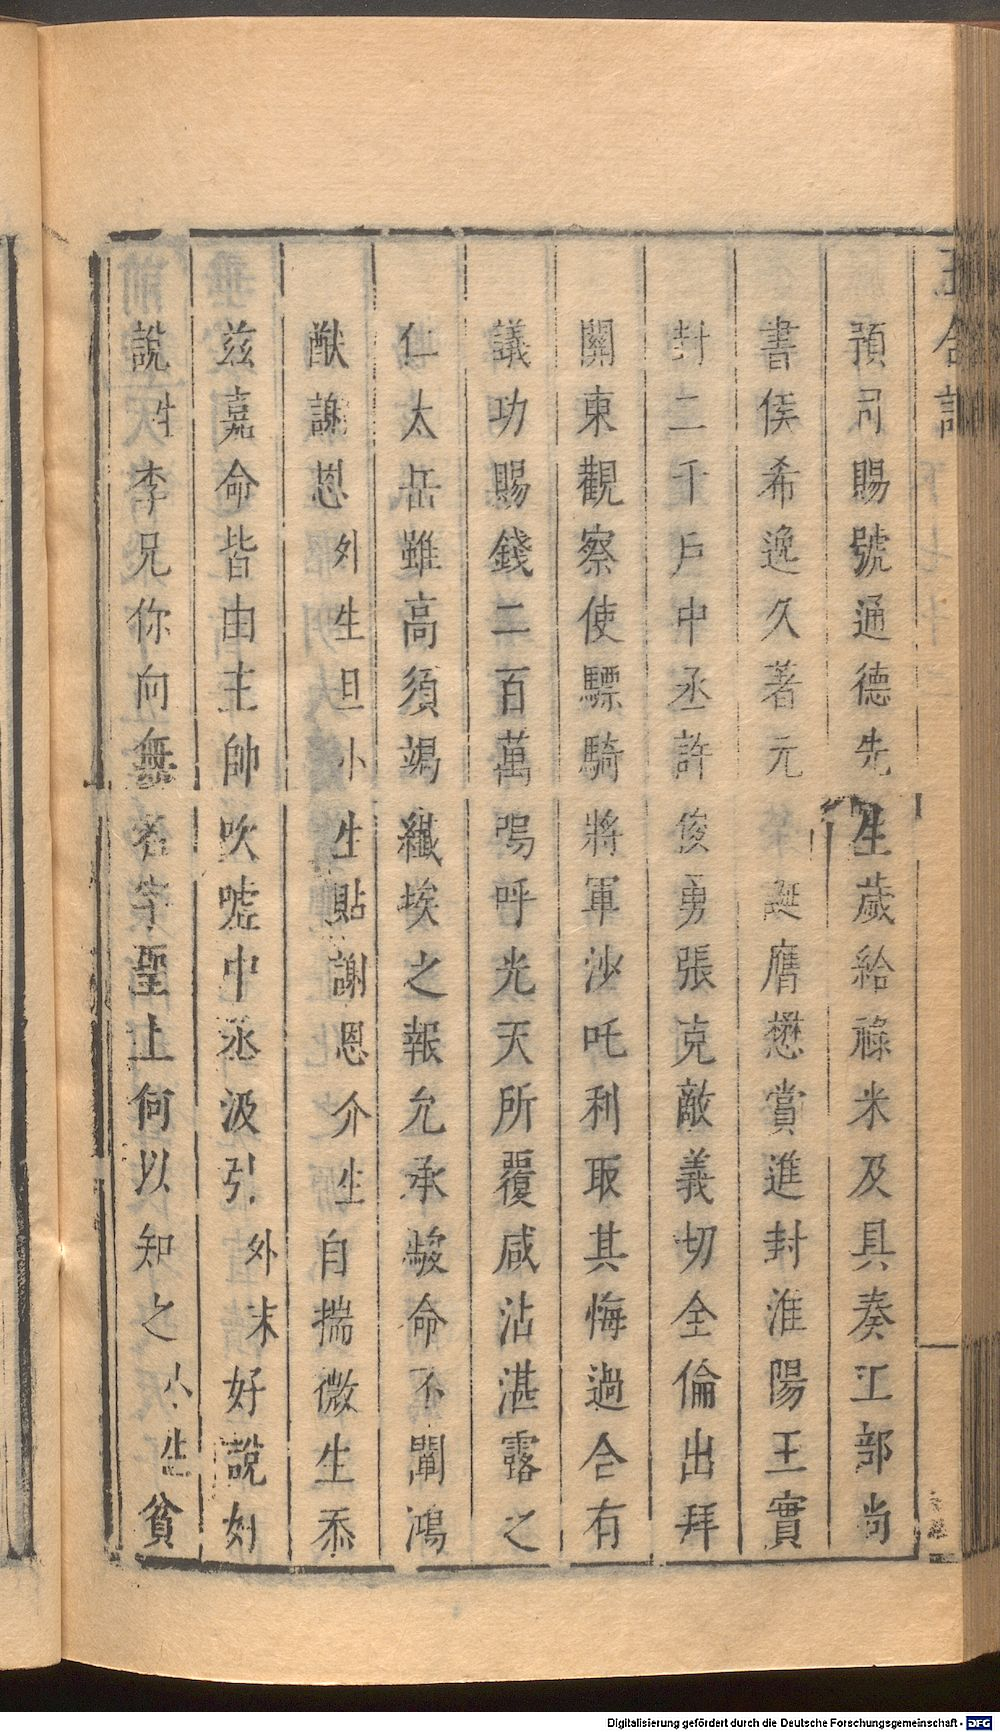 預司賜號通德先生歲給祿米及具奏工部尚
書侯希逸久著元誕膺懋賞進封淮陽王實
封二千戶中丞許俊勇張克敵義切全倫出拜
關東觀察使驃騎將軍沙吒利取其悔過合有
議功賜錢二百萬嗚呼光天所覆咸沾湛露之
仁太岳雖高須竭纖埃之報允承峻命不闡鴻
猷謝恩外生旦小生貼謝恩介生自揣微生忝
茲嘉命皆由主帥吹噓中丞汲引外末好說好
說生李兄你向無名字聖上何以知之小生貧
Digitalisierung gefördert durch die Deutsche Forschungsgemeinschaft - DFG